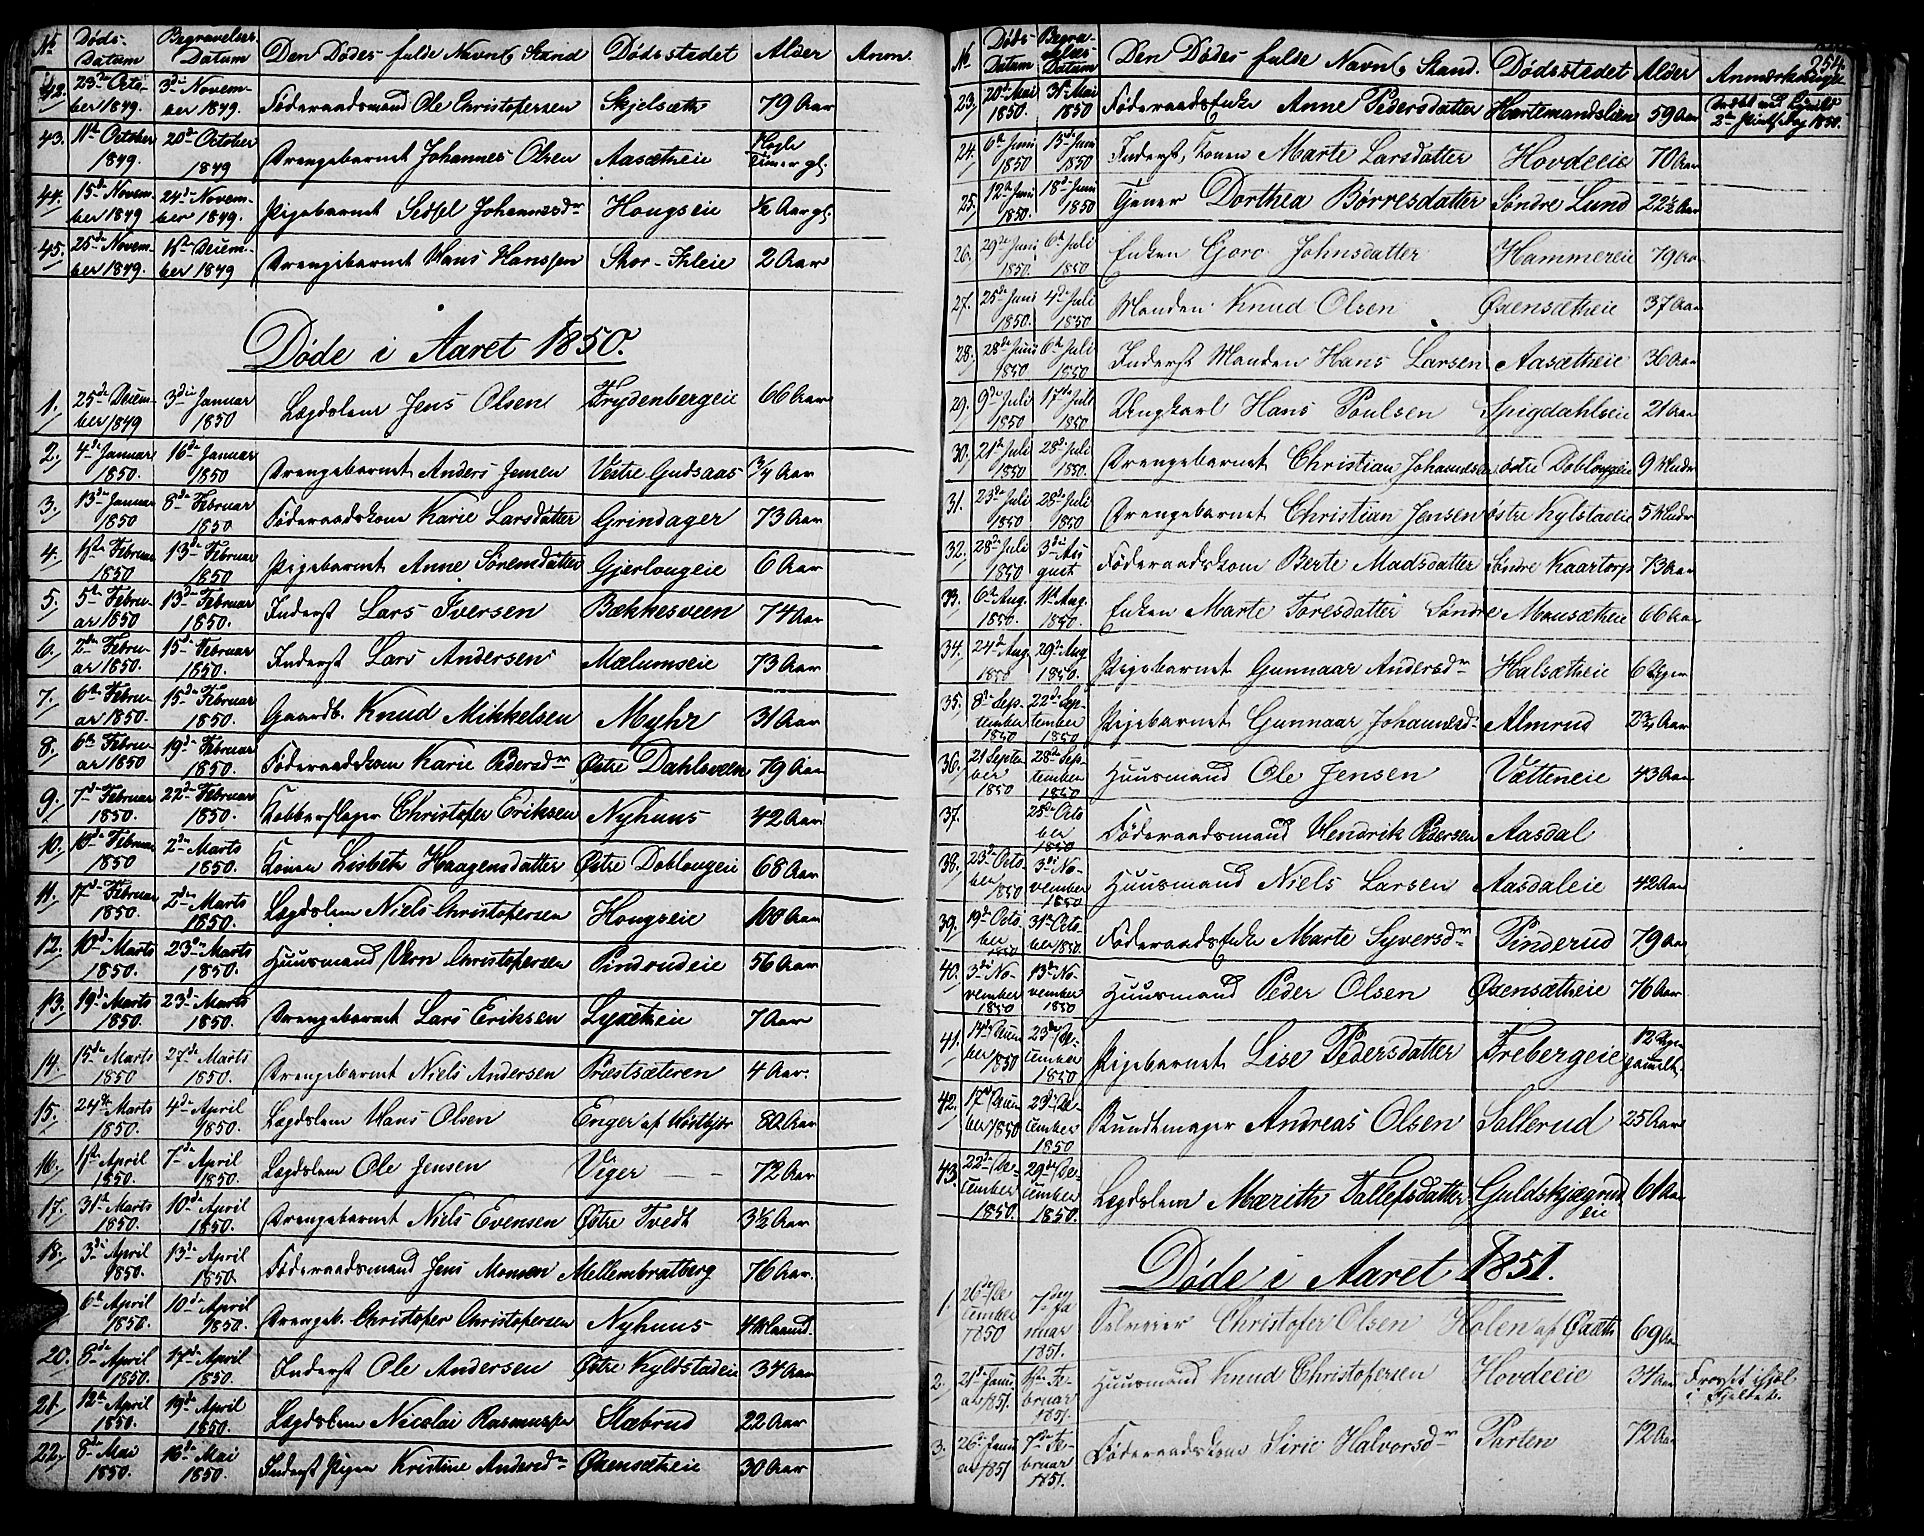 No Døds-Datum Begravelses Datum Den Dødes fulde Navn & Stand Dødsstedet Alder Anm.
42. 23de Octo-ber 1849. 3die Novem-ber 1849. Føderaadsmand Ole Christophersen Skjelsæth 79 Aar
43. 11te October 1849. 20de October 1849 Drengebarnet Johannes Olsen Aasætheie Nogle Timer gl.
44. 15de Novem-ber 1849 24de Novem-ber 1849. Pigebarnet Sidsel Johannesdr Hougseie ½ Aar gl.
45. 25de Novem-ber 1849. 1ste Decem-ber 1849 Drengebarnet Hans Hanssen Stor-Ihleie 2 Aar
Døde i Aaret 1850.
1. 25de Decem-ber 1849 3die Januar 1850 Lægdslem Jens Olsen Frydenbergeie 66 Aar
2. 4de Januar 1850. 16de Januar 1850 Drengebarnet Anders Jensen Vestre Gudsaas ¾ Aar
3. 13de Januar 1850 8de Februar 1850 Føderaadskone Karie Larsdatter Grindager 73 Aar
4. 1ste Februar 1850 13de Februar 1850 Pigebarnet Anne Sørensdatter Gjerlougeie 6 Aar
5. 5te Febru-ar 1850 13de Februar 1850. Inderst Lars Iversen Bækkesveen 74 Aar
6. 2den Febru-ar 1850. 15de Februar 1850. Inderst Lars Andersen Mælumseie 73 Aar
7. 6te Febru-ar 1850. 15de Februar 1850. Gaardb. Knud Mikkelsen Myhr 31 Aar
8. 6te Febru-ar 1850 19de Februar 1850. Føderaadskone Karie Pedersdr Østre Dahlsveen 79 Aar
9. 7de Februar 1850. 22de Februar 1850. Kobberslager Christopher Eriksen Nyhuus 42 Aar
10. 10de Februar 1850 2den Marts 1850. Konen Lisbeth Haagensdatter Østre Doblougeie 68 Aar
11. 17de Februar 1850. 2den Marts 1850. Lægdslem Niels Christophersen Hougseie 100 Aar
12. 10de Marts 1850. 23de Marts 1850. Huusmand Christophersen Pindrudeie 56 Aar
13. 19de Marts 1850. 23de Marts 1850. Drengebarnet Lars Eriksen Lysætheie 7 Aar
14. 15de Marts 1850 27de Marts 1850. Drengebarnet Niels Andersen Præstsæteren 4 Aar.
15. 24de Marts 1850. 4de April 1850. Lægdslem Hans Olsen Enger af 80 Aar
16. 1ste April 1850. 7de April 1850. Lægdslem Ole Jensen Viger — 72 Aar
17. 31te Marts 1850. 10de April 1850. Drengebarnet Niels Evensen Østre Tvedt 3½ Aar
18. 3die April 1850. 13de April 1850. Føderaadsmand Jens Monsen Mellembratberg 76 Aar.
6te April 1850. 10de April 1850. Drengeb. Christopher Christophersen Nyhuus 4 Maand.
20. 8de April 1850. 17de April 1850. Inderst Ole Andersen Østre Kyldstadeie 34 Aar
21. 12te April 1850. 19de April 1850. Lægdslem Nicolai Rasmussen Stæbrud 22 Aar
22. 8de Mai 1850. 16de Mai 1850. Inderst Pigen Kristine Andersdr Øxensætheie 30 Aar
254.
No Døds-Datum Begra-velses Datum Den Dødes fulde Navn & Stand. Dødsstedet Alder Anmærkninger
23. 20de Mai 1850. 31te Mai 1850 Føderaadsenke Anne Pedersdatter Hortemandslien 59 Aar 2den Pintsedag 1850.
24. 6te Juni 1850 15de Juni 1850 Inderst, Konen Marte Larsdatter Hovdeeie 70 Aar
25. 12te Juni 1850. 18de Juni 1850 Dorthea Børresdatter Søndre Lund 22½ Aar
26. 29de Juni 1850. 6te Juli 1850 Enken Gjoro Johnsdatter Hammereie 79 Aar
27. 25de Juni 1850. 4de Juli 1850 Manden Knud Olsen Øxensætheie 37 Aar
28. 28de Juni 1850 6te Juli 1850 Inderst Manden Hans Larsen Aasætheie 36 Aar
29. 9de Juli 1850 17de Juli 1850 Ungkarl Hans Poulsen Spigdahlseie 21 Aar
30. 21de Juli 1850 28de Juli 1850. Drengebarnet Christian Johannesen østre Doblougeie 9 Mndr
31. 23de Juli 1850 28de Juli 1850. Drengebarnet Christian Jensen østre Kylstadeie 5 Mndr
32. 28de Juli 1850 3die Au-gust Føderaadskone Berte Madsdatter Søndre Kaartorp 73 Aar
33. 6te Aug. 1850. 11te Aug. 1850. Enken Marte Toresdatter Søndre Monsætheie 66 Aar
34. 24de Aug. 1850 29de Aug 1850. Pigebarnet Gunnaar Andersdr Halsætheie 6 Uger
35. 8de Sep-tember 1850 22de Sep-tember 1850 Pigebarnet Gunnaar Johannesdr Almrud 2¾ Aar
36. 21 Septem-ber 1850 28de Sep-tember 1850 Huusmand Ole Jensen Vætteneie 43 Aar
37. 28de Octo-ber 1850 Føderaadsmand Hendrik Pedersen Aasdal
38. 23de Octo-ber 1850 3die No-vember 1850 Huusmand Niels Larsen Aasdaleie 42 Aar
39. 19de Octo-ber 1850 31te Octo-ber 1850. Føderaadsenke Marte Syversdr Pinderud 79 Aar
40. 3die No-vember 1850 13de No-vember 1850 Huusmand Peder Olsen Øxensætheie 76 Aar
41. 14de Decem-ber 1850 23de De-cember 1850 Pigebarnet Lise Pedersdatter Frebergeie 12 Dage gammelt.
42. 17de Decem-ber 1850 23de De-cember 1850 Bundtmager Andreas Olsen Sollerud 25 Aar
43. 22de De-cember 1850. 29de De-cember 1850. Lægdslem Marith Tollefsdatter Guldskjægrud eie 61 Aar
Døde i Aaret 1851.
1. 26de De-cember 1850 7de Ja-nuar 1851. Selveier Christopher Olsen Holen af Øxseth 69 Aar
2. 21de Janu-ar 1851. 1ste Fe-bruar 1851. Huusmand Knud Christophersen Hovdeeie 34 Aar Frosset ihjel i Fjeldet.
3. 26de Janu-ar 1851 7de Fe-bruar 1851. Føderaadskone Sirie Halvorsdr Parten 72 Aar